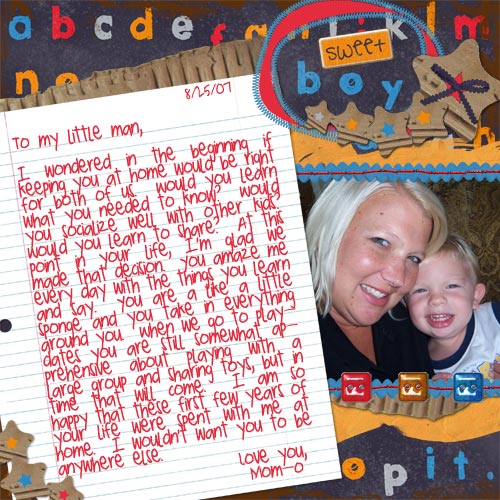 a b c d e f k l m
n o
sweet
boy
8/25/07
To my little man,
I wondered in the beginning if
keeping you at home would be right
for both of us. would you learn
what you needed to know? would
you socialize well with other kids?
would you learn to share? At this
point in your life, I'm glad we
made that decision. you amaze me
every day with the things you learn
and say. you are a like a little
sponge and you take in everything
around you. when we go to play-
dates you are still somewhat ap-
prehensive about playing with a
large group and sharing toys, but in
time that will come. I am so
happy that these first few years of
your life were spent with me at
home. I wouldn't want you to be
anywhere else.
Love you,
Mom-o
o p i t .